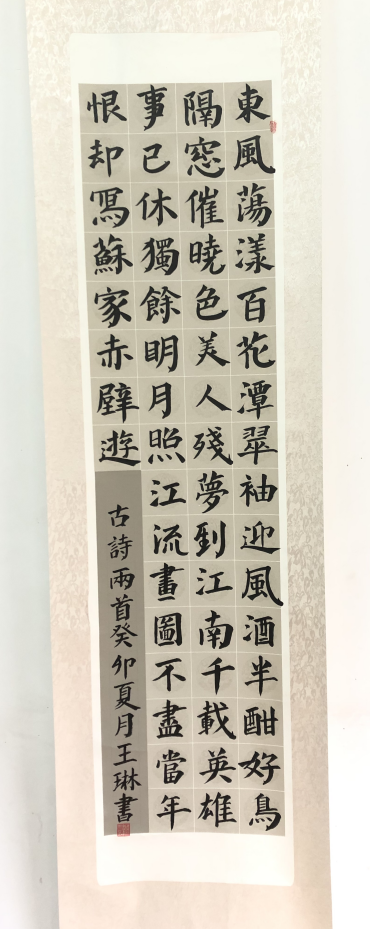 東風蕩漾百花潭翠袖迎風酒半酣好鳥
隔窓催曉色美人殘夢到江南千載英雄
事已休獨餘明月照江流畫圖不盡當年
恨却寫蘇家赤壁遊
古詩兩首癸卯夏月王琳書